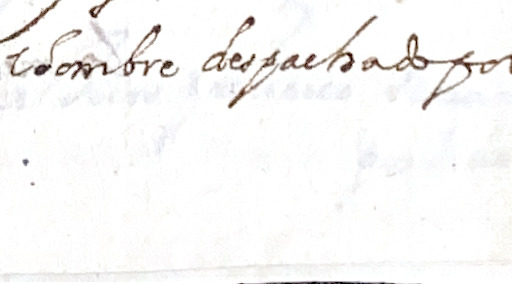 nombre despachado por